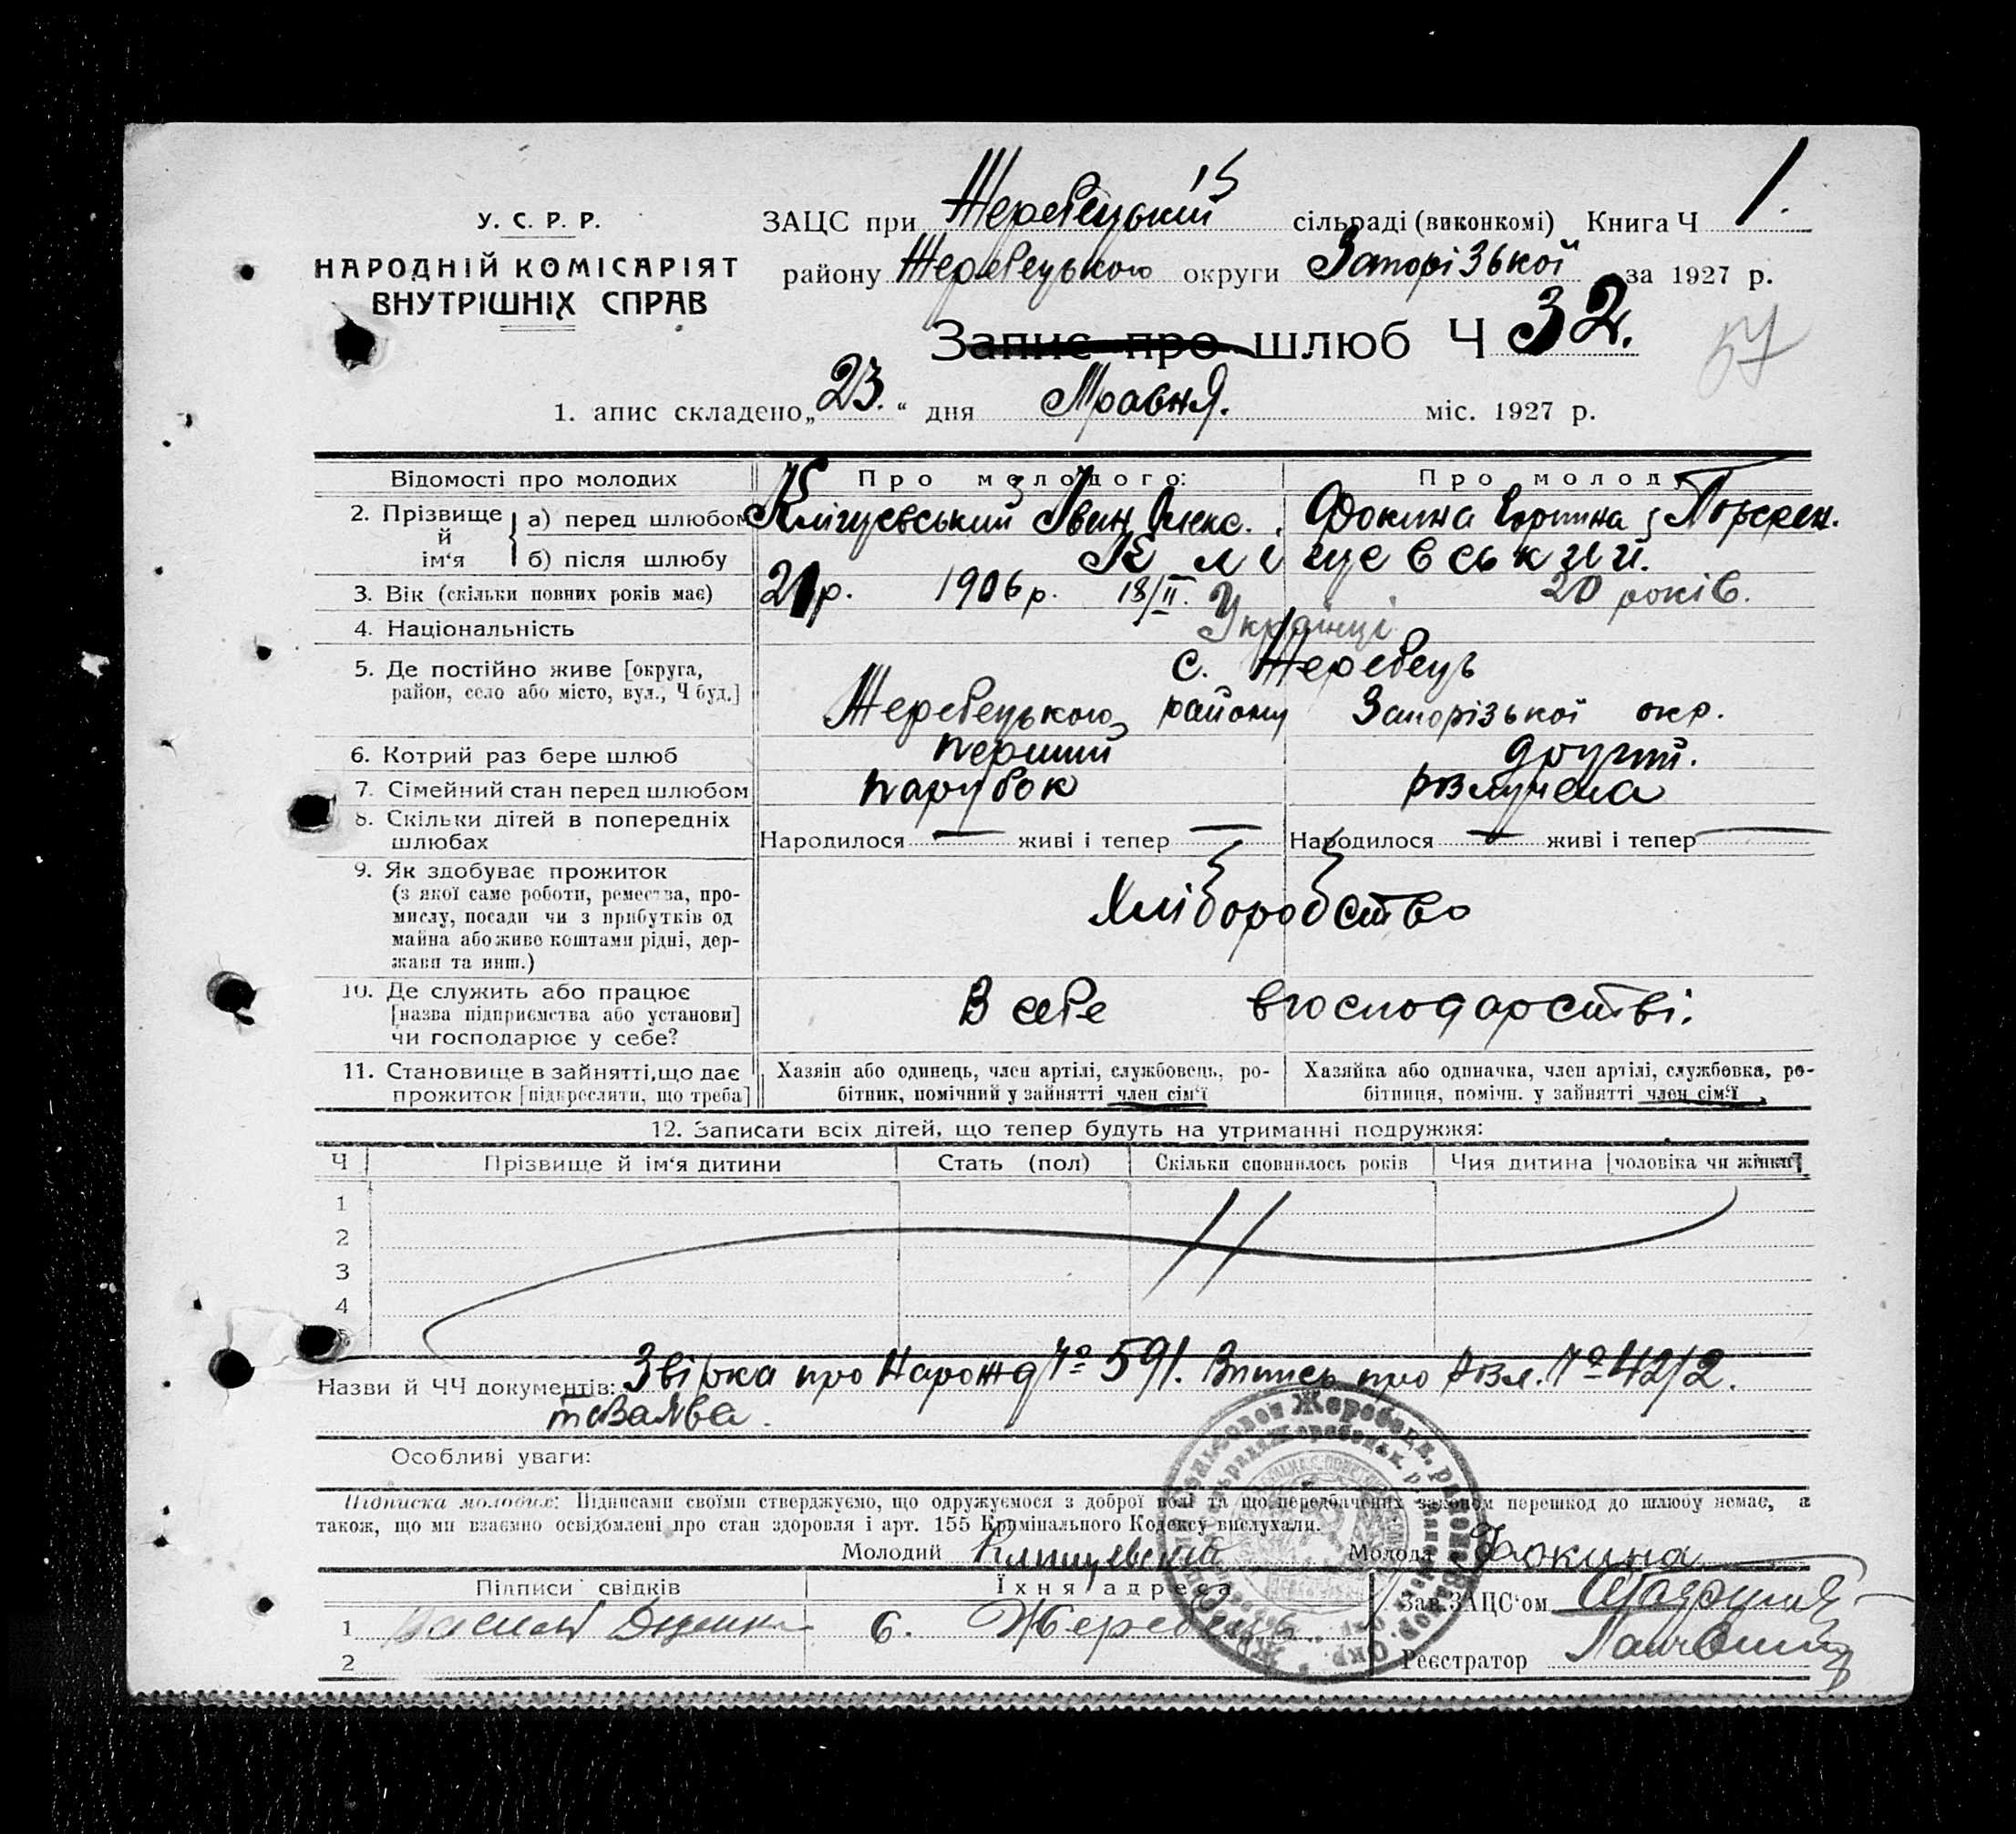 У. С. Р. Р.
НАРОДНІЙ КОМІСАРІЯТ
ВНУТРІШНІХ СПРАВ
ЗАЦС при Жеребецькій сільраді (виконкомі) Книга Ч 1.
району Жеребецького округи Запорізької за 1927 р.
Запис про шлюб Ч 32.
57
1. апис складено „23.“ дня Травня. міс. 1927 р.
Відомості про молодих Про молодого: Про молод
2. Прізвище й ім‘я
а) перед шлюбом Кліщевський Іван Фокина
б) після шлюбу Кліщевський.
3. Вік (скільки повних років має) 21 р. 1906 р. 18/II. 20 років.
4. Національність Українці
5. Де постійно живе [округа, с. Жеребець
район, село або місто, вул., Ч буд.] Жеребецького району Запорізької окр.
6. Котрий раз бере шлюб перший другий.
7. Сімейний стан перед шлюбом парубок розлучена
8. Скільки дітей в попередніх
шлюбах Народилося — живі і тепер — Народилося — живі і тепер —
9. Як здобуває прожиток
(з якої саме роботи, ремества, про-
мислу, посади чи з прибутків од Хліборобство
майна або живе коштами рідні, дер-
жави та инш.)
10. Де служить або працює
[назва підприємства або установи] В себе в господарстві.
чи господарює у себе?
11. Становище в зайнятті, що дає Хазяїн або одинець, член артілі, службовець, ро- Хазяйка або одиначка, член артілі, службовка, ро-
прожиток [підкреслити, що треба] бітник, помічний у зайнятті член сім‘ї бітниця, помічн. у зайнятті член сім‘ї
12. Записати всіх дітей, що тепер будуть на утриманні подружжя:
Ч Прізвище й ім‘я дитини Стать (пол) Скільки сповнилось років Чия дитина [чоловіка чи жінки]
1
2
3
4
Назви й ЧЧ документів: Звірка про Нарожд № 591. Запись про Розл. № 42/2.
та Заява.
Особливі уваги:
Підписка молодих: Підписами своїми стверджуємо, що одружуємося з доброї волі та що передбачених законом перешкод до шлюбу немає, а
також, що ми взаємно освідомлені про стан здоровля і арт. 155 Кримінального Кодексу вислухали.
Молодий Клищевский Молода Фокина
Підписи свідків Їхня адреса Зав. ЗАЦС‘ом
1 с. Жеребець
2 Реєстратор